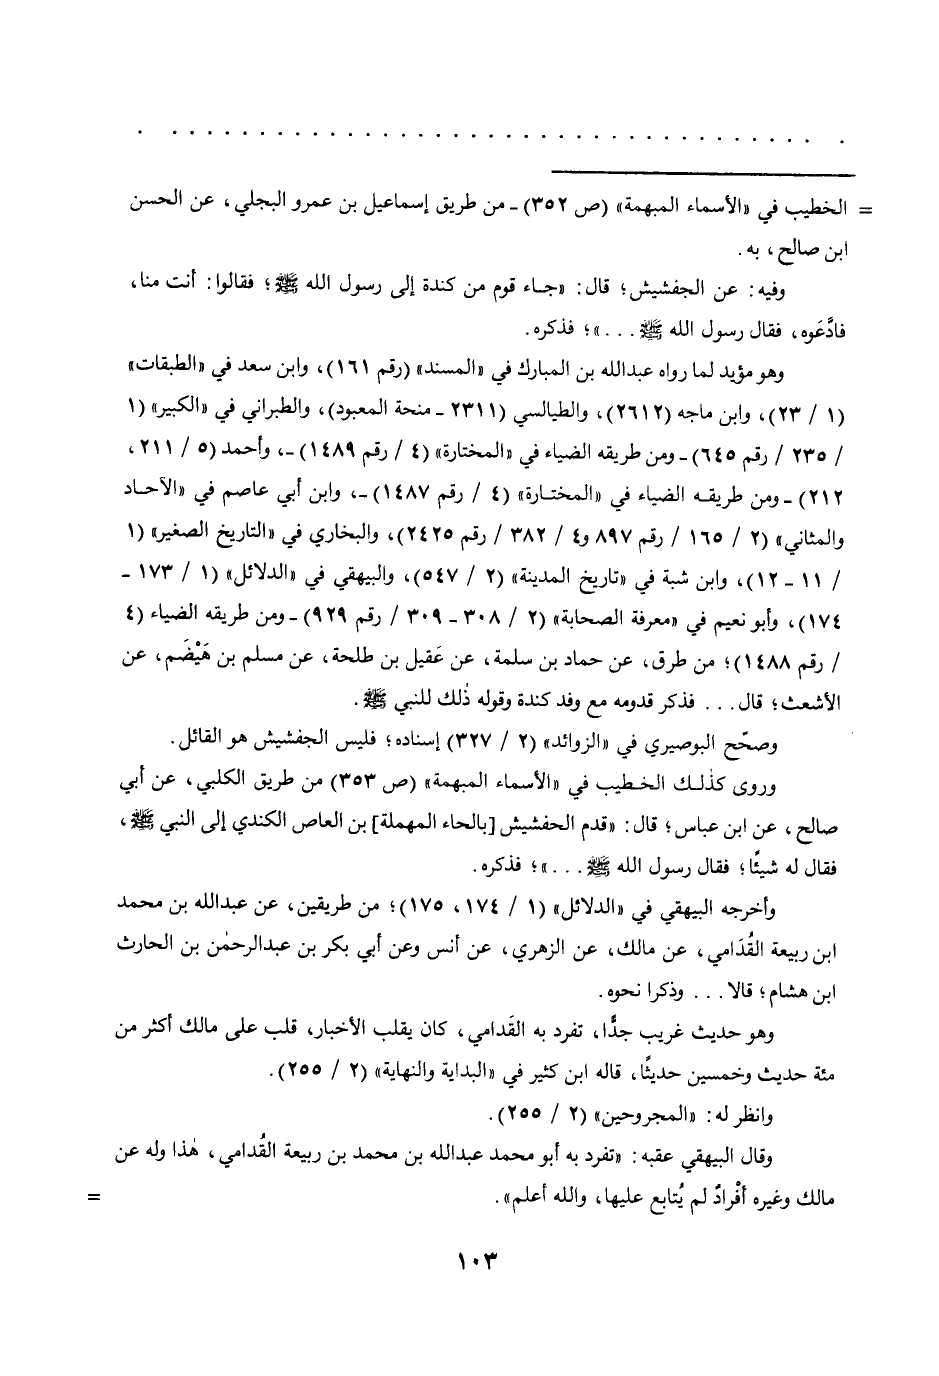 . . . . . . . . . . . . . . . . . . . . . . . . . . . . . . . . . . . . . . . .
= الخطيب في «الأسماء المبهمة» (ص ٣٥٢) ـ من طريق إسماعيل بن عمرو البجلي، عن الحسن
ابن صالح، به.
وفيه: عن الجفشيش؛ قال: «جاء قوم من كندة إلى رسول الله ﷺ؛ فقالوا: أنت منا،
فادَّعَوه، فقال رسول الله ﷺ . . .»؛ فذكره.
وهو مؤيد لما رواه عبدالله بن المبارك في «المسند» (رقم ١٦١)، وابن سعد في «الطبقات»
(١ / ٢٣)، وابن ماجه (٢٦١٢)، والطيالسي (٢٣١١ ـ منحة المعبود)، والطبراني في «الكبير» (١
/ ٢٣٥ / رقم ٦٤٥) ـ ومن طريقه الضياء في «المختارة» (٤ / رقم ١٤٨٩) ـ، وأحمد (٥ / ٢١١،
٢١٢) ـ ومن طريقه الضياء في «المختارة» (٤ / رقم ١٤٨٧) ـ، وابن أبي عاصم في «الآحاد
والمثاني» (٢ / ١٦٥ / رقم ٨٩٧ و٤ / ٣٨٢ / رقم ٢٤٢٥)، والبخاري في «التاريخ الصغير» (١
/ ١١ ـ ١٢)، وابن شبة في «تاريخ المدينة» (٢ / ٥٤٧)، والبيهقي في «الدلائل» (١ / ١٧٣ ـ
١٧٤)، وأبو نعيم في «معرفة الصحابة» (٢ / ٣٠٨ ـ ٣٠٩ / رقم ٩٢٩) ـ ومن طريقه الضياء (٤
/ رقم ١٤٨٨)؛ من طرق، عن حماد بن سلمة، عن عَقيل بن طلحة، عن مسلم بن هَيْضَم، عن
الأشعث؛ قال. . . فذكر قدومه مع وفد كندة وقوله ذٰلك للنبي ﷺ.
وصحّح البوصيري في «الزوائد» (٢ / ٣٢٧) إسناده؛ فليس الجفشيش هو القائل.
وروى كذٰلك الخطيب في «الأسماء المبهمة» (ص ٣٥٣) من طريق الكلبي، عن أبي
صالح، عن ابن عباس؛ قال: «قدم الحفشيش [بالحاء المهملة] بن العاص الكندي إلى النبي ﷺ،
فقال له شيئًا؛ فقال رسول الله ﷺ . . .»؛ فذكره.
وأخرجه البيهقي في «الدلائل» (١ / ١٧٤، ١٧٥)؛ من طريقين، عن عبدالله بن محمد
ابن ربيعة القُدَامي، عن مالك، عن الزهري، عن أنس وعن أبي بكر بن عبدالرحمٰن بن الحارث
ابن هشام؛ قالا. . . وذكرا نحوه.
وهو حديث غريب جدًّا، تفرد به القَدامي، كان يقلب الأخبار، قلب على مالك أكثر من
مئة حديث وخمسين حديثًا، قاله ابن كثير في «البداية والنهاية» (٢ / ٢٥٥).
وانظر له: «المجروحين» (٢ / ٢٥٥).
وقال البيهقي عقبه: «تفرد به أبو محمد عبدالله بن محمد بن ربيعة القُدامي، هٰذا وله عن
مالك وغيره أفْرادٌ لم يُتابع عليها، والله أعلم». =
١٠٣